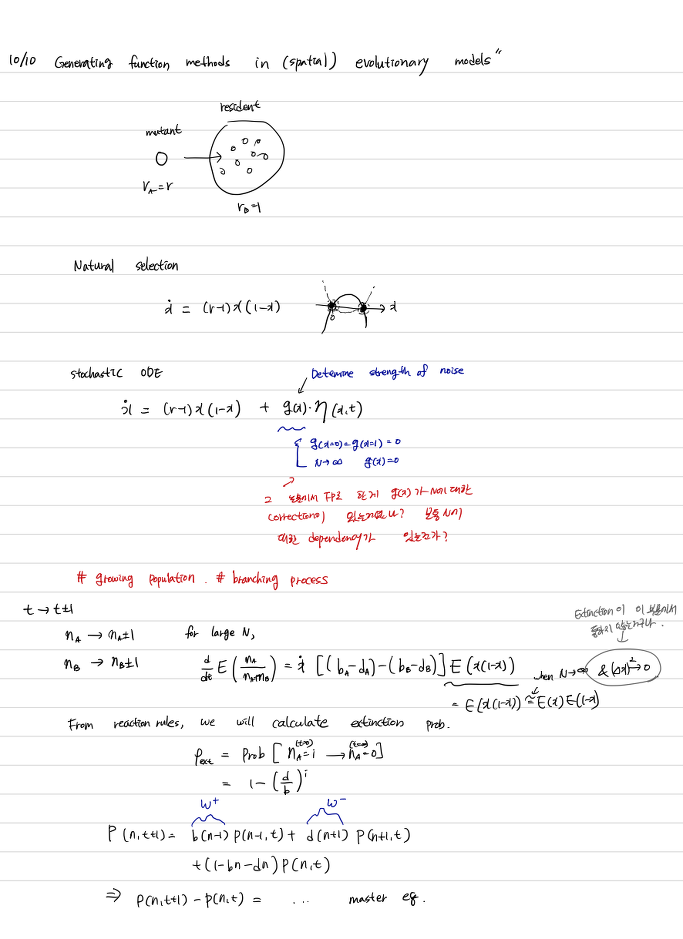 10/10 Generating function methods in (spatial) evolutionary models"
resident
mutant
r_A = r
r_B = 1
Natural selection
ẋ = (r-1)x(1-x)
0
x
stochastic ODE
Detemine strength of noise
ẋ = (r-1)x(1-x) + g(x)·η(x,t)
g(x=0)=g(x=1)=0
N→∞ g(x)=0
FP로 한게 g(x)가 N에 대한
correction이
대한 dependency가 있는건가?
# growing population. # branching process
t → t±1
n_A → n_A±1 for large N,
n_B → n_B±1
Extinction이 이
d/dt E(n_A/(n_A+n_B)) = ẋ [(b_A-d_A)-(b_B-d_B)] E(x(1-x)) when N→∞ & (Δx)²→0
= E(x(1-x)) ≈ E(x)E(1-x)
From reaction rules, we will calculate extinction prob.
ρ_ext = Prob [n_A^(t=0)=i → n_A^(t=∞)=0]
= 1-(d/b)^i
W⁺ W⁻
P(n,t+1) = b(n-1)P(n-1,t) + d(n+1)P(n+1,t)
+(1-bn-dn)P(n,t)
⇒ P(n,t+1) - P(n,t) = ... master eq.